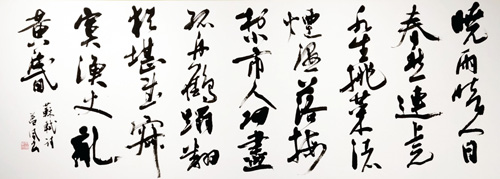 曉雨暗人日
春愁連上元
水生挑菜渚
煙濕落梅
村小市人歸盡
孤舟鶴踏翻
猶堪慰寂
寞漁火亂
黃昏
蘇軾詩